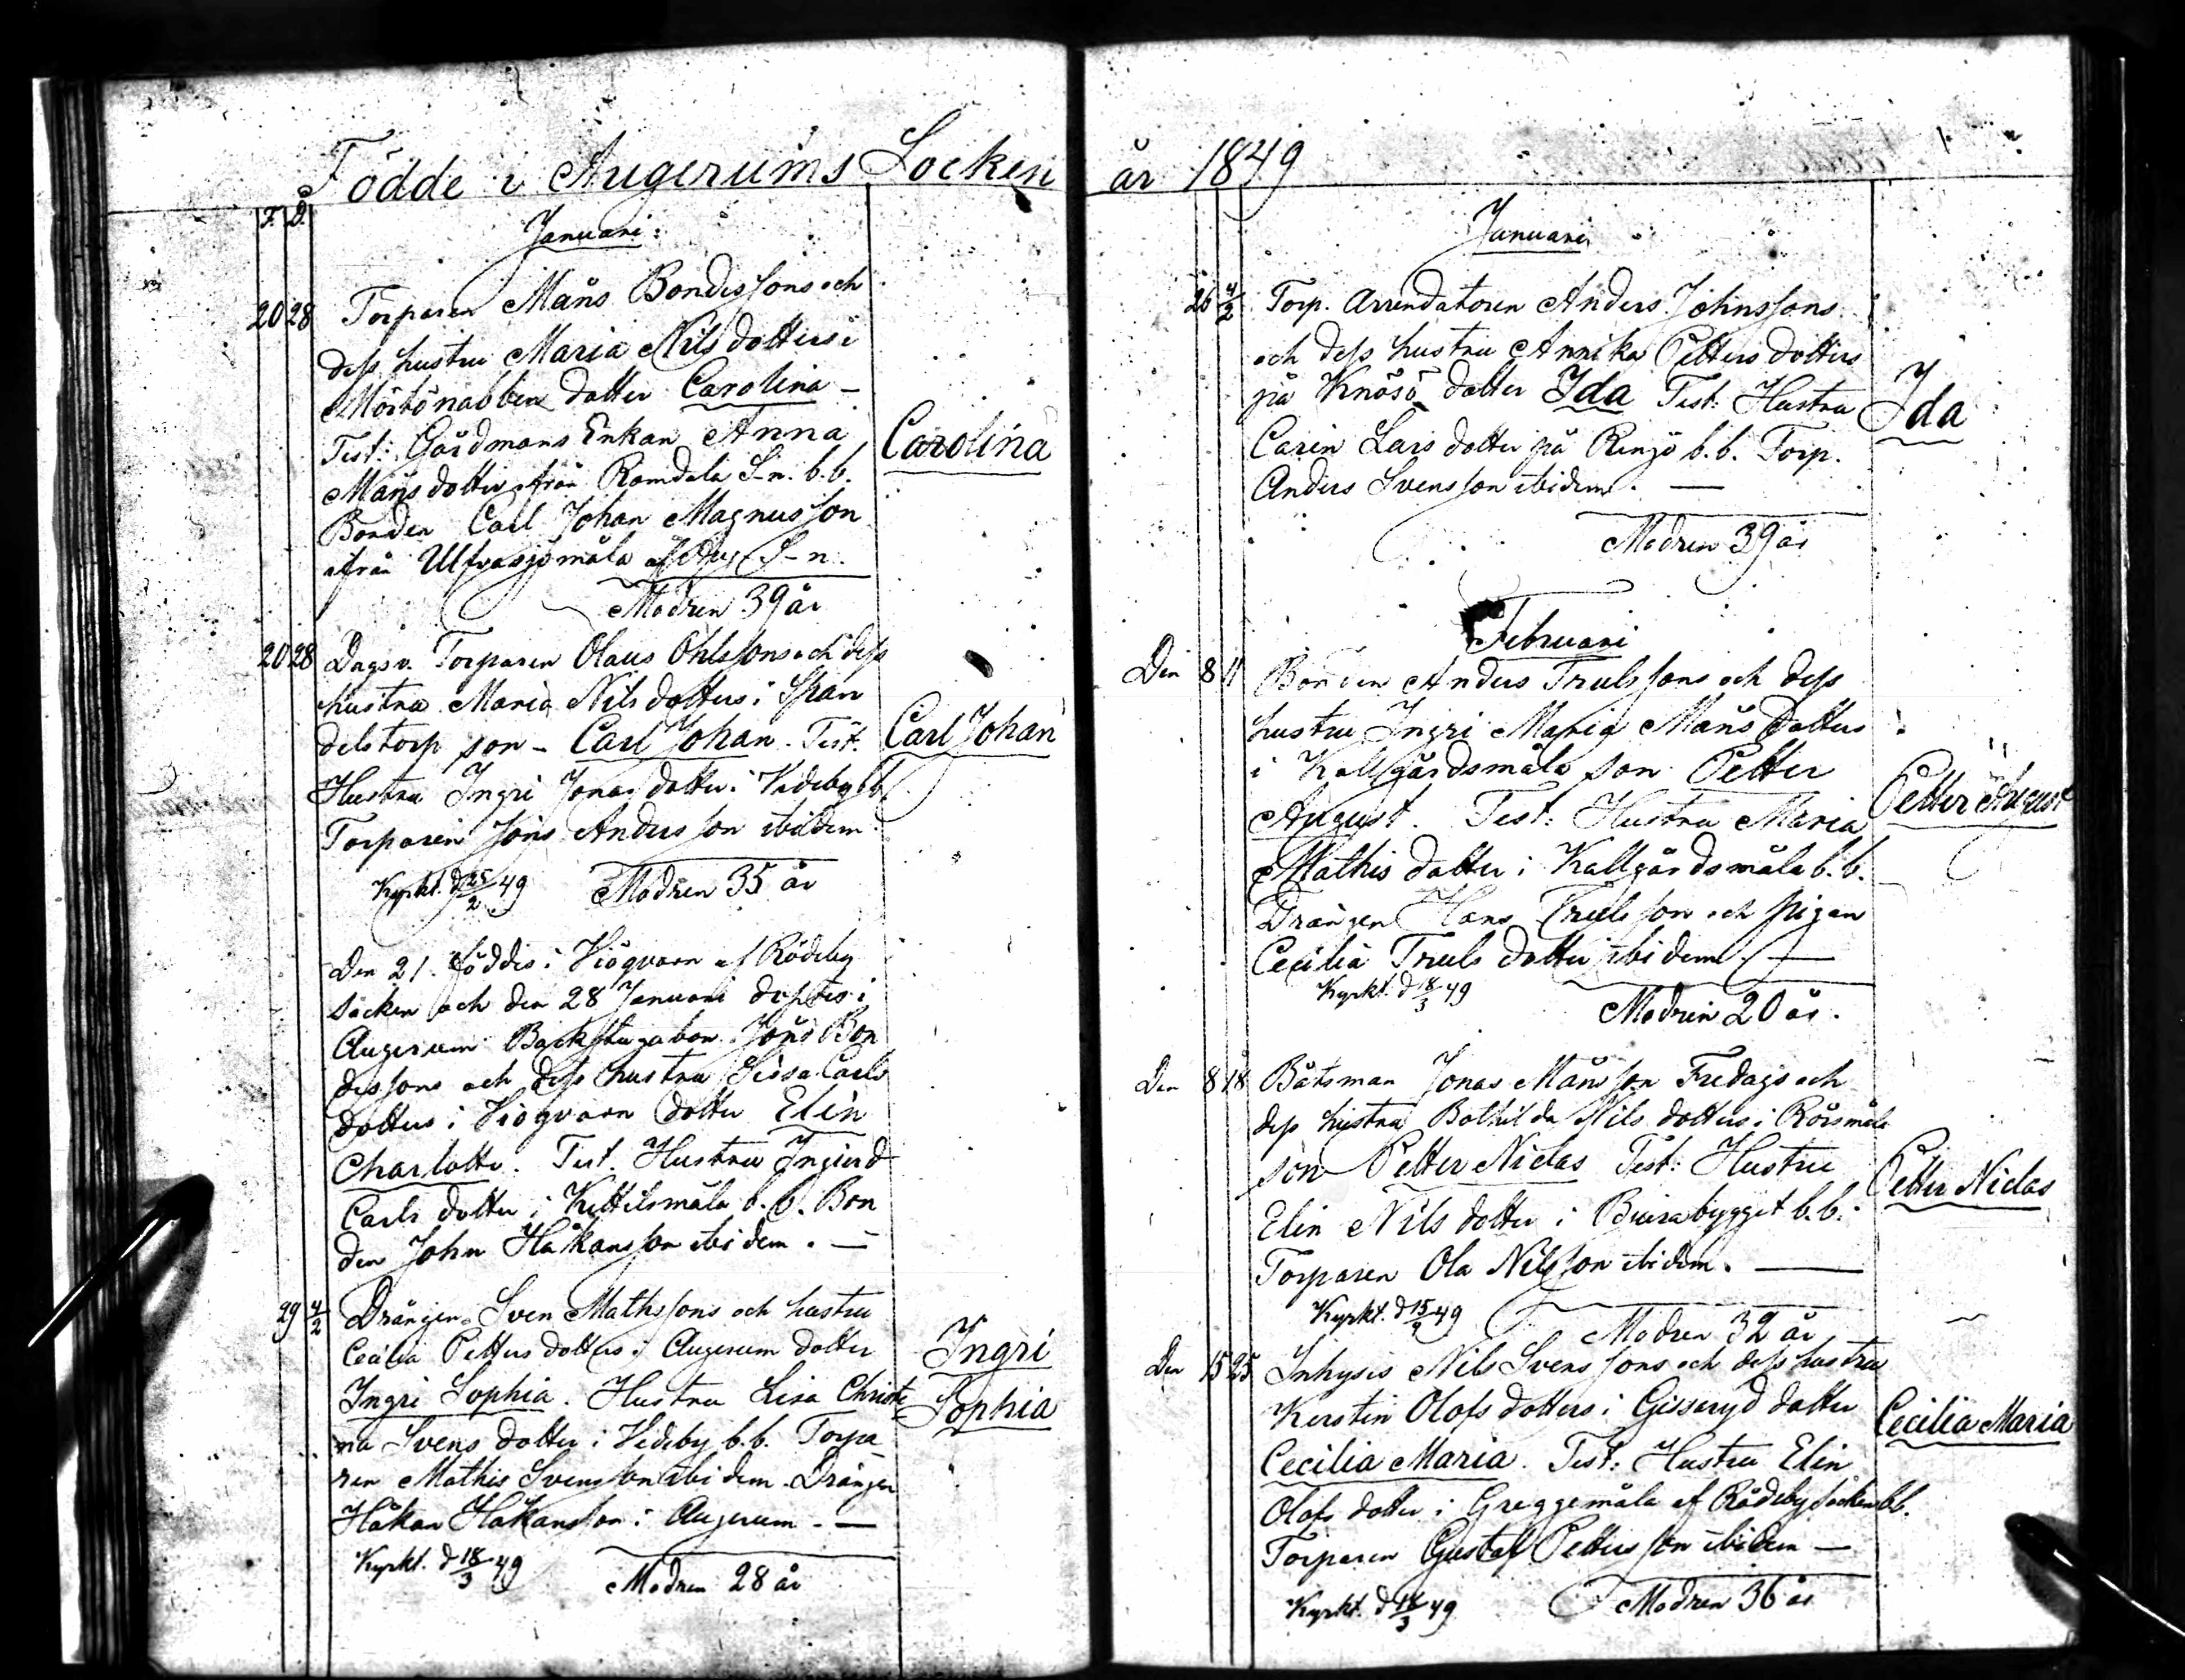 Födde i Augerums Socken år 1849
F. D.
Januari:
20 28 Torparen Måns Bondessons och
dess hustru Maria Nilsdotters i
Mörtönabben dotter Carolina –
Carolina
Test: Gårdmans Enkan Anna
Månsdotter ifrån Ramdala S-n. b.b.
Bonden Carl Johan Magnusson
ifrån Ulfvasjömåla af S-n.
Modren 39 år
20 28 Dagsv. Torparen Olaus Ohlssons och dess
hustru Maria Nilsdotters i Span
delstorp son – Carl Johan. Test.
Carl Johan
Hustru Ingri Jonasdotter i Vedeby bb
Torparen Jöns Andersson ibidem.
Kyrkt. d 25/2 49 Modren 35 år
Den 21. föddes i Siögvarn af Rödeby
socken och den 28 Januari döptes i
Augerum Backstugabon Jöns Bon
dessons och dess hustru Sissa Carls
dotters i Siögvarn dotter Elin
Charlotta. Test. Hustru Ingierd
Carls dotter i Kettilsmåla b.b. Bon
den John Håkansson ibidem. –
29 4/2 Drängen Sven Mathssons och hustru
Cecilia Petters dotters i Augerum dotter
Ingri Sophia. Hustru Lisa Christi
Ingri
Sophia
na Svens dotter i Vedeby b.b. Torpa
ren Mathis Svensson ibidem. Drängen
Håkan Håkansson i Augerum. –
Kyrkt. d 18/3 49 Modren 28 år
Januari
26 4/2 Torp. Arrendatoren Anders Johnssons
och dess hustru Annika Petters dotters
på Knösö dotter Ida Test: Hustru
Ida
Carin Lars dotter på Ringö b.b. Torp.
Anders Svensson ibidem. –
Modren 39 år
Februari
Den 8 11 Bonden Anders Trulssons och dess
hustru Ingri Maria Måns dotters
i Kallgårdsmåla son Petter
Petter August
August. Test: Hustru Maria
Mathis dotter i Kallgårdsmåla b.b.
Drängen Hans Trulsson och pigan
Cecilia Truls dotter ibidem. –
Kyrkt. d 18/3 49
Modren 20 år.
Den 8 18 Båtsman Jonas Månsson Fredags och
dess hustru Bothilda Nils dotters i Rörsmåla
son Petter Niclas Test: Hustru
Petter Niclas
Elin Nils dotter i b.b.
Torparen Ola Nilsson ibidem. –
Kyrkt. d 49
Modren 32 år
Den 15 25 Inhyses Nils Svenssons och dess hustru
Kerstin Olofs dotters i Gisseryd dotter
Cecilia Maria
Cecilia Maria. Test: Hustru Elin
Olofs dotter i Greggemåla af Rödeby socken bb.
Torparen Gustaf Pettersson ibidem –
Kyrkt. d 18/3 49 Modren 36 år